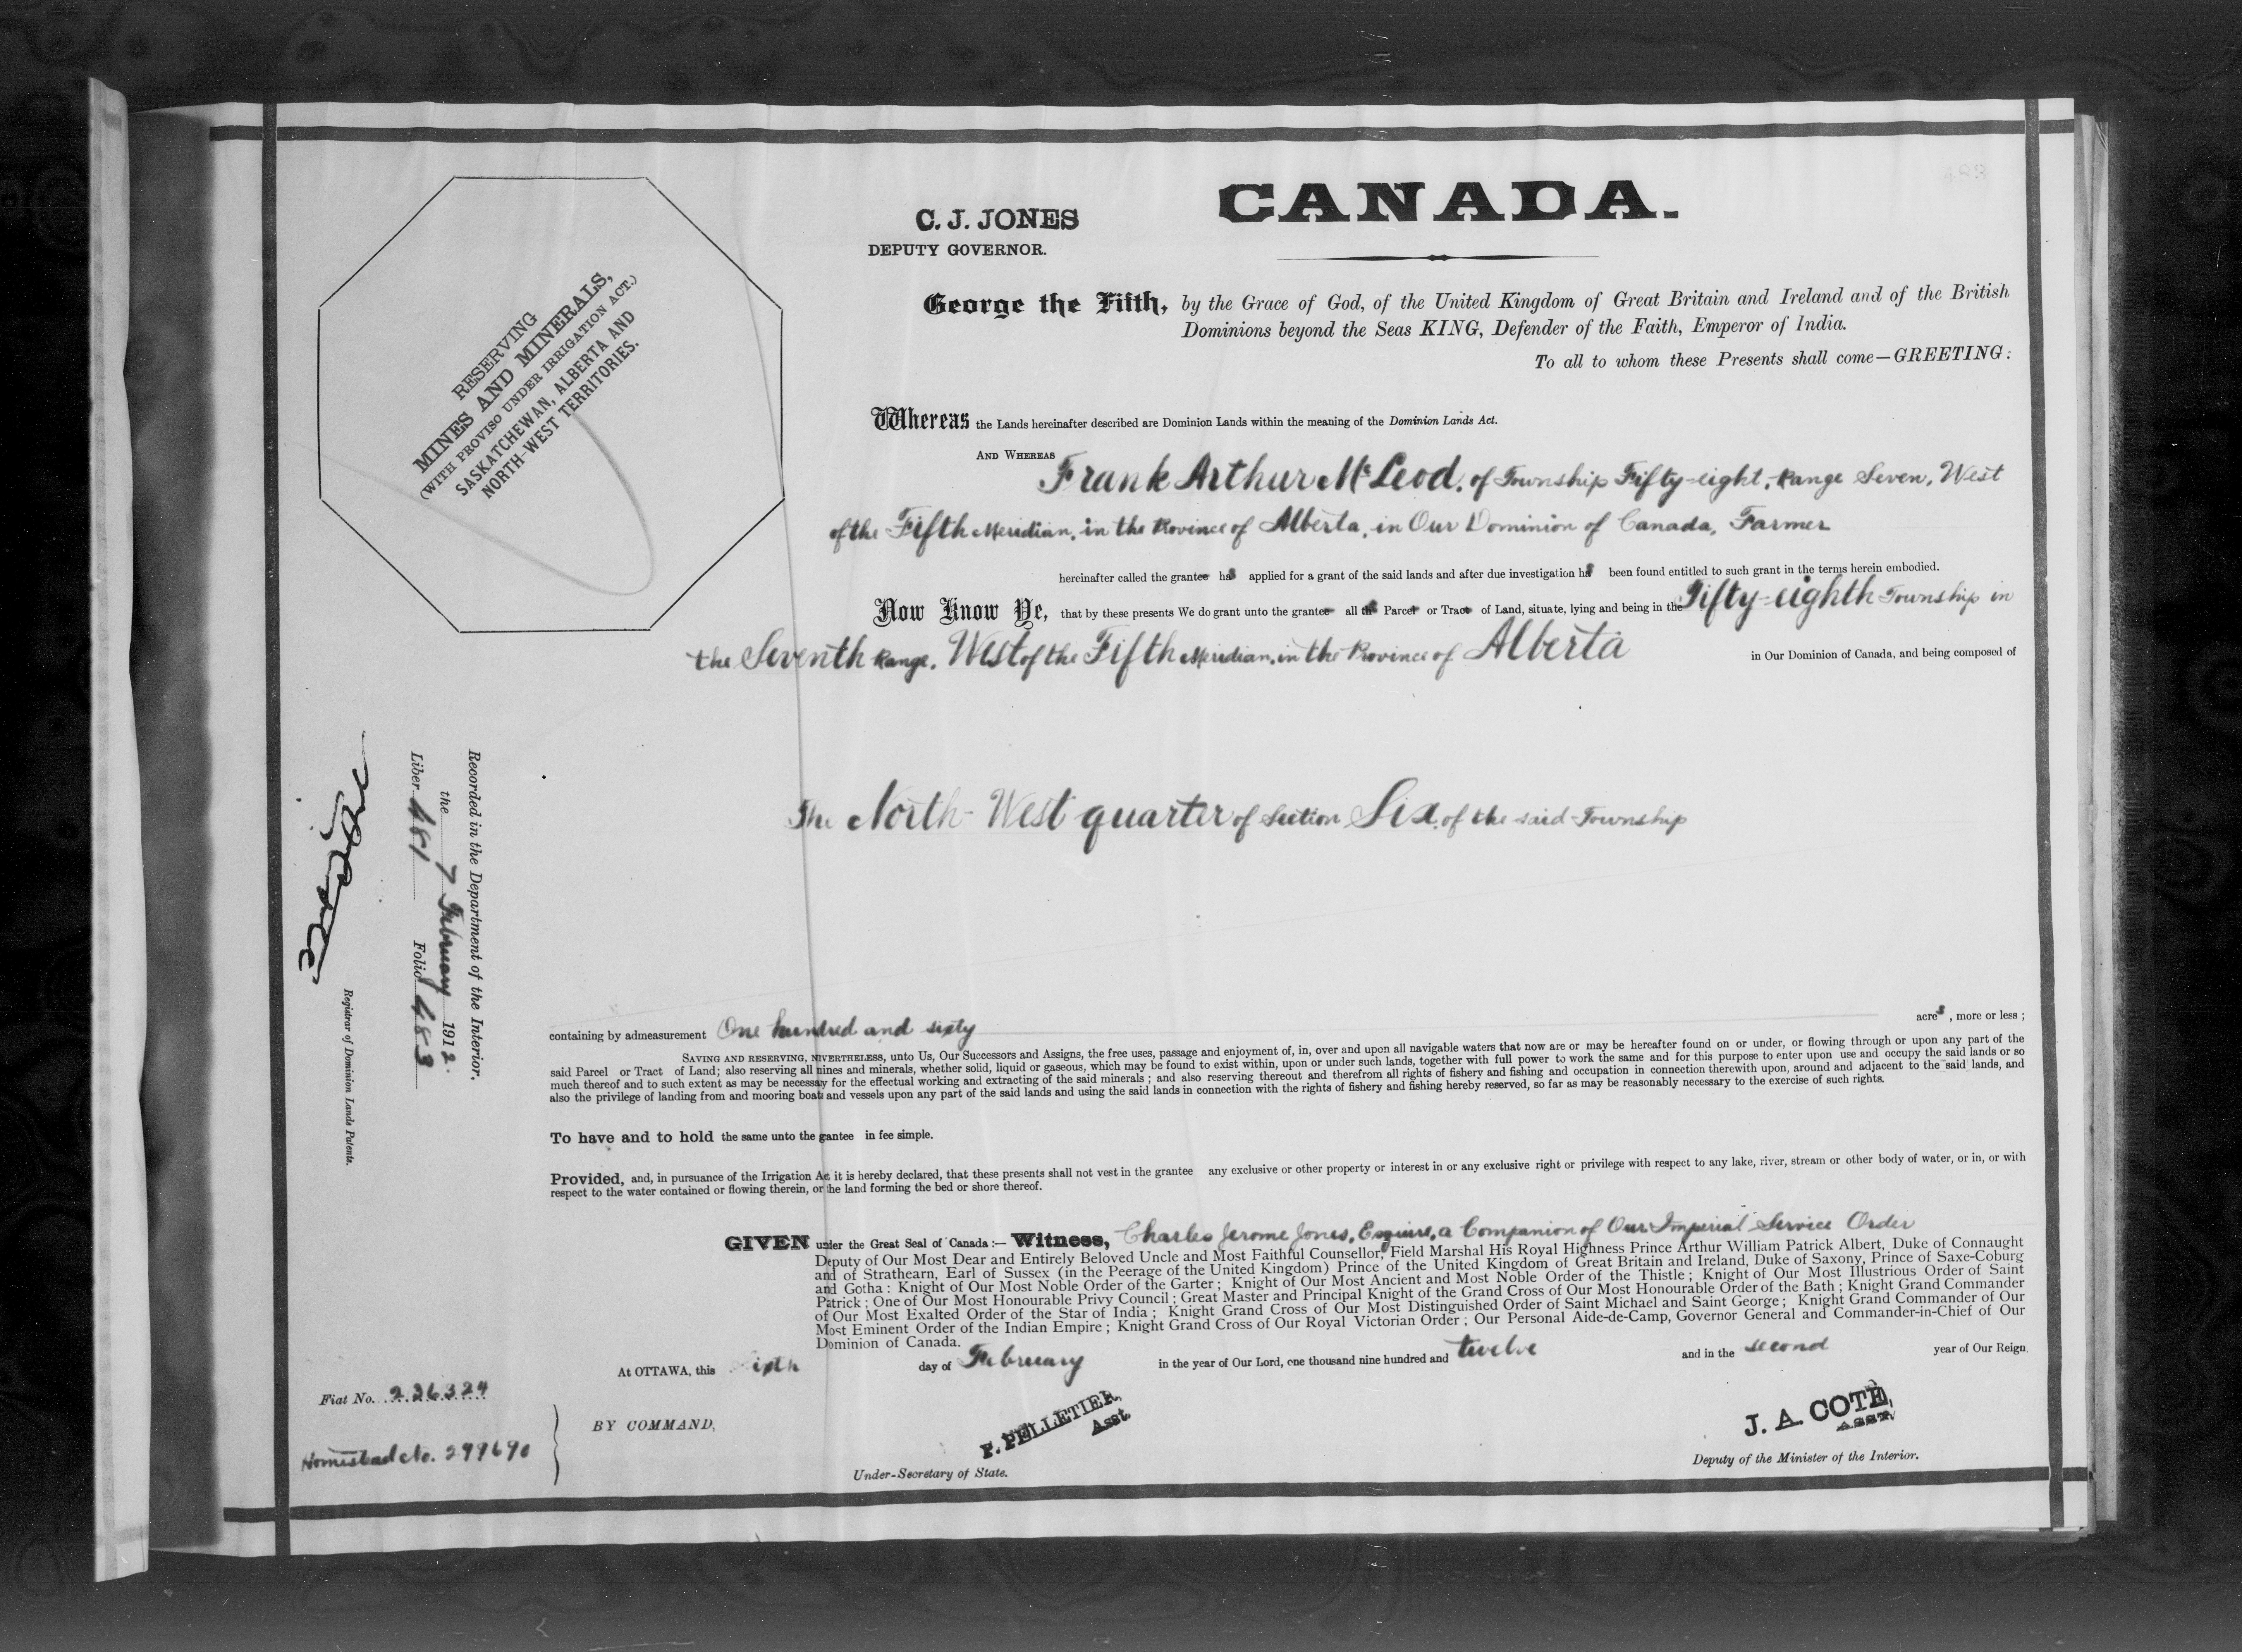 CANADA.
C. J. JONES
DEPUTY GOVERNOR.
RESERVING
MINES AND MINERALS,
(WITH PROVISO UNDER IRRIGATION ACT.)
SASKATCHEWAN, ALBERTA AND
NORTH-WEST TERRITORIES.
George the Fifth, by the Grace of God, of the United Kingdom of Great Britain and Ireland and of the British
Dominions beyond the Seas KING, Defender of the Faith, Emperor of India.
To all to whom these Presents shall come—GREETING:
Whereas the Lands hereinafter described are Dominion Lands within the meaning of the Dominion Lands Act.
AND WHEREAS Frank Arthur McLeod, of Township Fifty-eight, Range Seven, West
of the Fifth Meridian, in the Province of Alberta, in Our Dominion of Canada, Farmer
hereinafter called the grantee has applied for a grant of the said lands and after due investigation has been found entitled to such grant in the terms herein embodied.
Now Know Ye, that by these presents We do grant unto the grantee all that Parcel or Tract of Land, situate, lying and being in the Fifty-eighth Township in
the Seventh Range, West of the Fifth Meridian, in the Province of Alberta in Our Dominion of Canada, and being composed of
The North-West quarter of Section Six, of the said Township
containing by admeasurement One hundred and sixty acres, more or less;
SAVING AND RESERVING, NEVERTHELESS, unto Us, Our Successors and Assigns, the free uses, passage and enjoyment of, in, over and upon all navigable waters that now are or may be hereafter found on or under, or flowing through or upon any part of the
said Parcel or Tract of Land; also reserving all mines and minerals, whether solid, liquid or gaseous, which may be found to exist within, upon or under such lands, together with full power to work the same and for this purpose to enter upon use and occupy the said lands or so
much thereof and to such extent as may be necessary for the effectual working and extracting of the said minerals; and also reserving thereout and therefrom all rights of fishery and fishing and occupation in connection therewith upon, around and adjacent to the said lands, and
also the privilege of landing from and mooring boats and vessels upon any part of the said lands and using the said lands in connection with the rights of fishery and fishing hereby reserved, so far as may be reasonably necessary to the exercise of such rights.
To have and to hold the same unto the grantee in fee simple.
Provided, and, in pursuance of the Irrigation Act it is hereby declared, that these presents shall not vest in the grantee any exclusive or other property or interest in or any exclusive right or privilege with respect to any lake, river, stream or other body of water, or in, or with
respect to the water contained or flowing therein, or the land forming the bed or shore thereof.
GIVEN under the Great Seal of Canada:— Witness, Charles Jerome Jones, Esquire, a Companion of Our Imperial Service Order
Deputy of Our Most Dear and Entirely Beloved Uncle and Most Faithful Counsellor, Field Marshal His Royal Highness Prince Arthur William Patrick Albert, Duke of Connaught
and of Strathearn, Earl of Sussex (in the Peerage of the United Kingdom) Prince of the United Kingdom of Great Britain and Ireland, Duke of Saxony, Prince of Saxe-Coburg
and Gotha: Knight of Our Most Noble Order of the Garter; Knight of Our Most Ancient and Most Noble Order of the Thistle; Knight of Our Most Illustrious Order of Saint
Patrick; One of Our Most Honourable Privy Council; Great Master and Principal Knight of the Grand Cross of Our Most Honourable Order of the Bath; Knight Grand Commander
of Our Most Exalted Order of the Star of India; Knight Grand Cross of Our Most Distinguished Order of Saint Michael and Saint George; Knight Grand Commander of Our
Most Eminent Order of the Indian Empire; Knight Grand Cross of Our Royal Victorian Order; Our Personal Aide-de-Camp, Governor General and Commander-in-Chief of Our
Dominion of Canada.
At OTTAWA, this sixth day of February in the year of Our Lord, one thousand nine hundred and twelve and in the second year of Our Reign.
BY COMMAND,
P. PELLETIER,
Asst.
Under-Secretary of State.
J. A. COTE,
ASST.
Deputy of the Minister of the Interior.
Fiat No. 226324
Homestead No. 299690
Recorded in the Department of the Interior,
the 7 February 1912.
Liber 481 Folio 483
Registrar of Dominion Lands Patents.